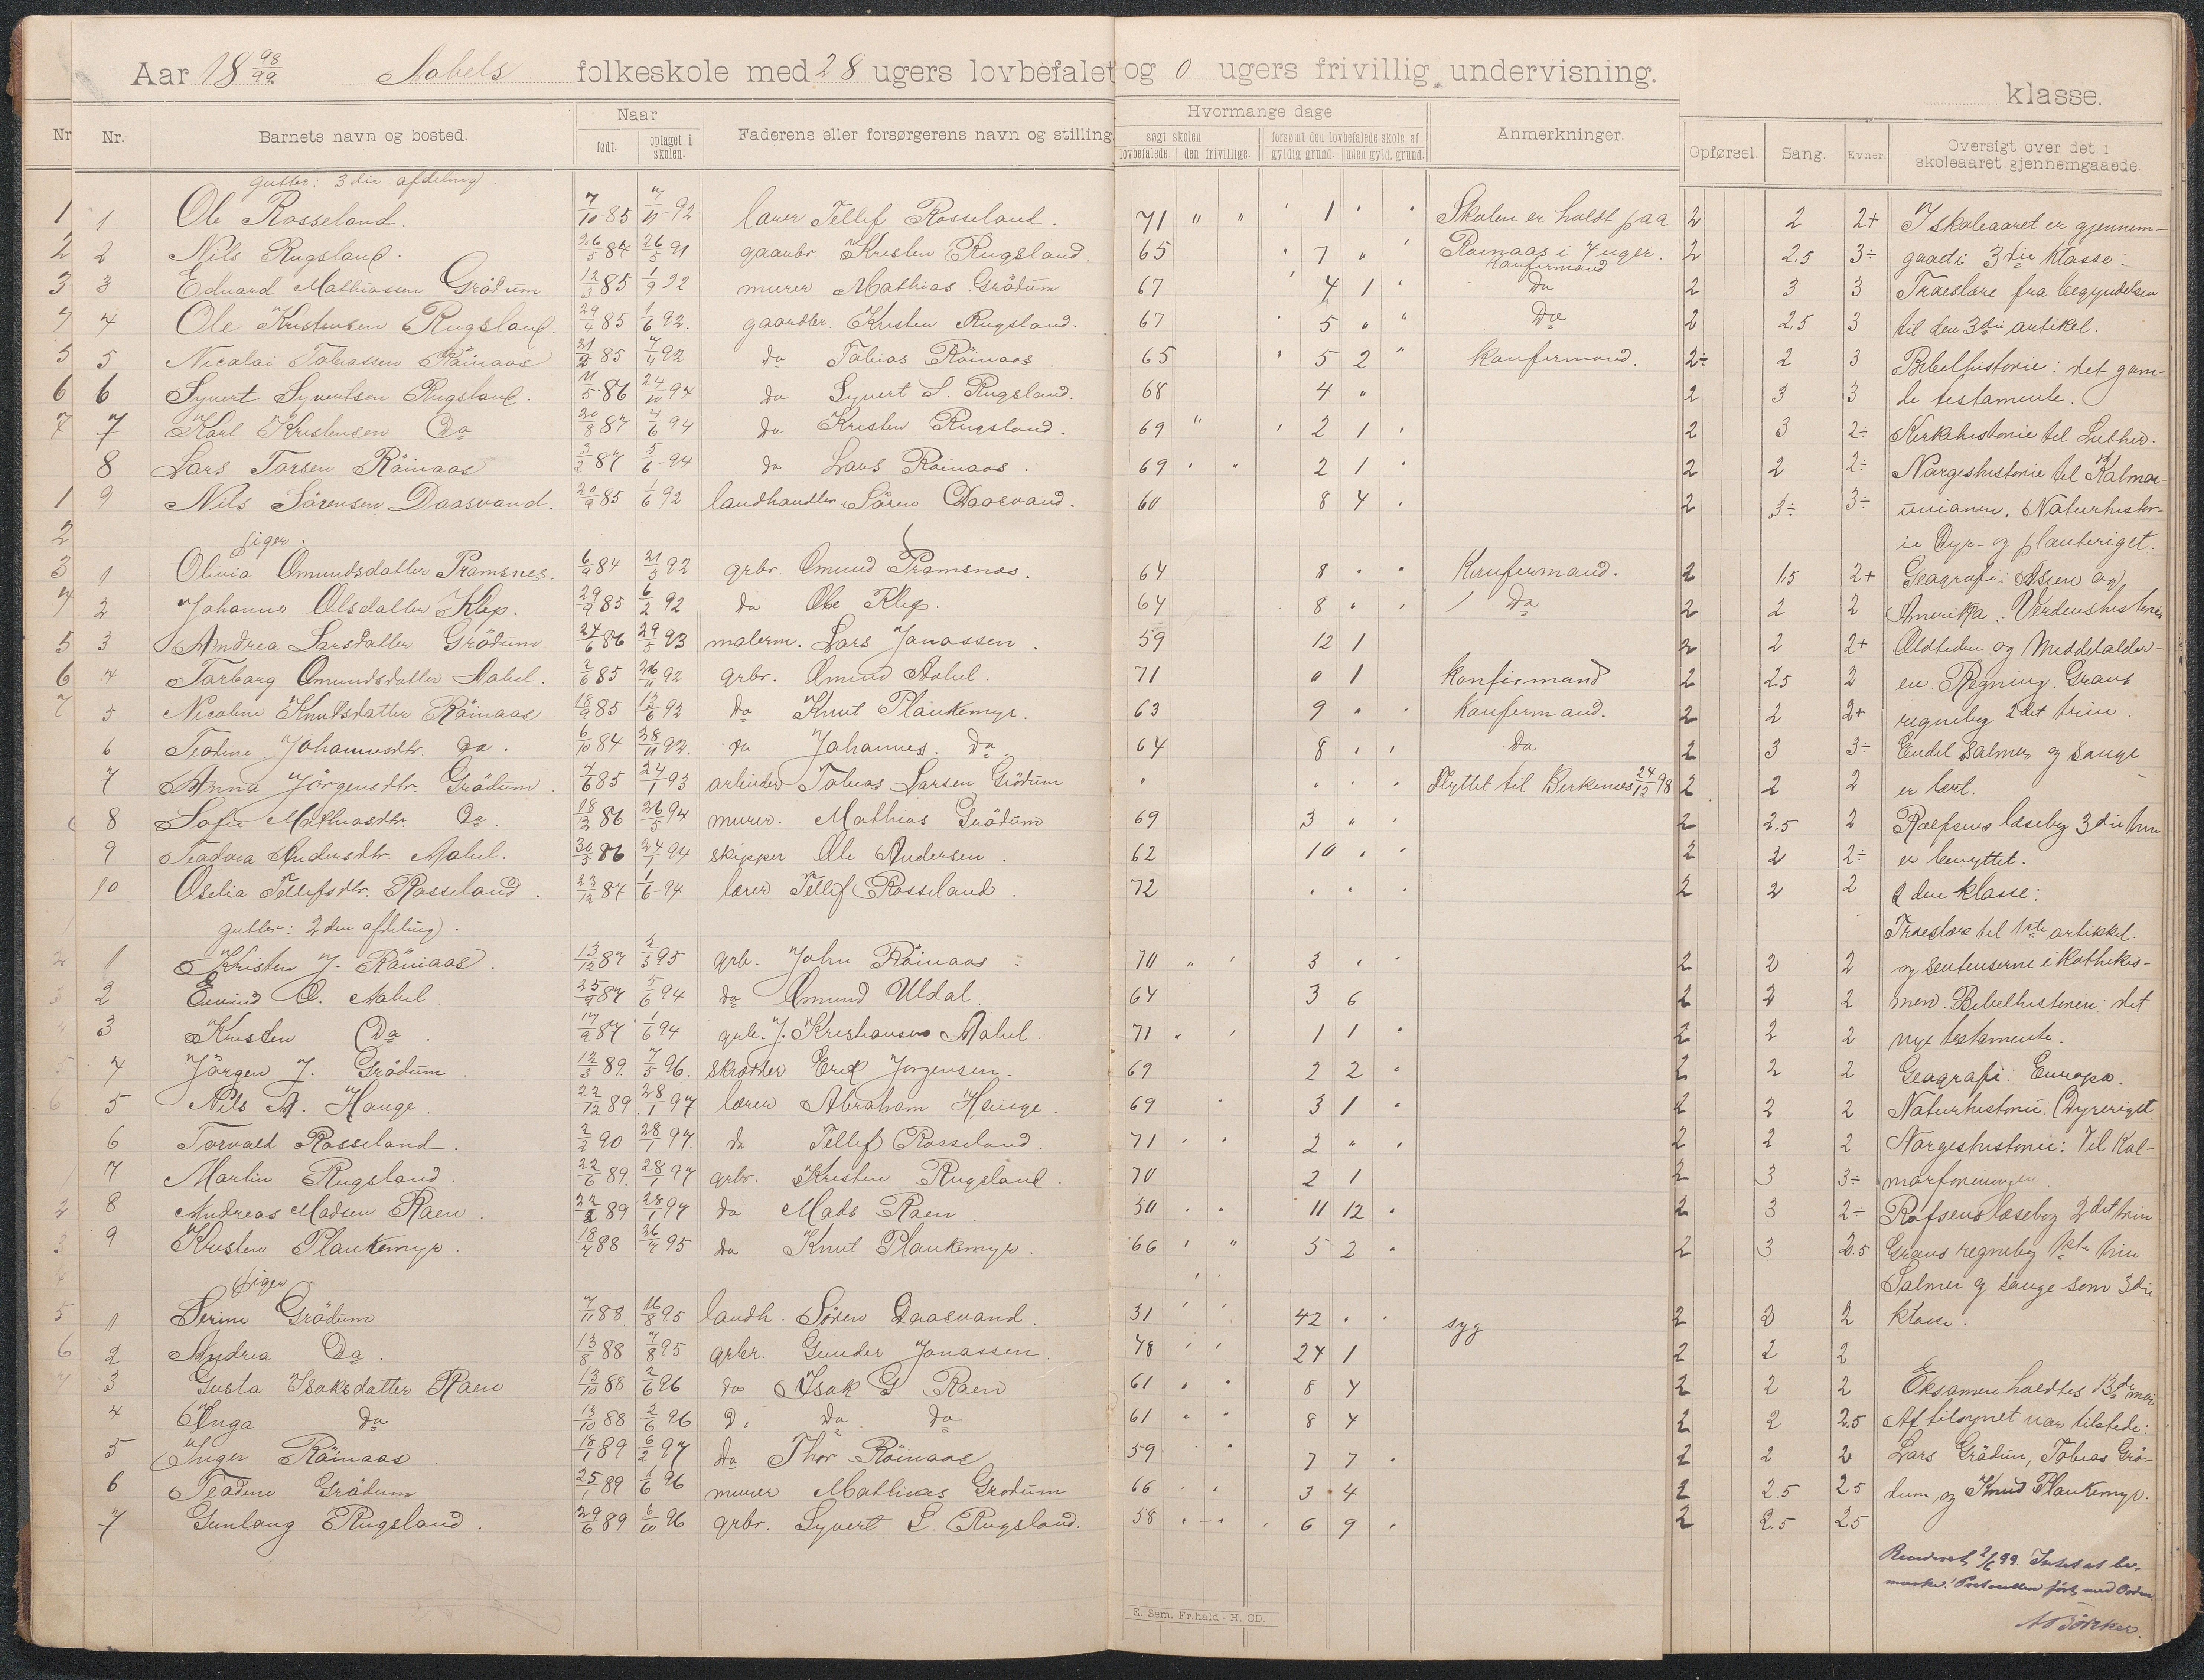 Aar 18 98/99 Aabels folkeskole med 28 ugers lovbefalet og 0 ugers frivillig undervisning.
klasse.
Nr. Nr. Barnets navn og bosted. Naar født. optaget i skolen. Faderens eller forsørgerens navn og stilling Hvormange dage søgt skolen lovbefalede den frivillige. forsømt den lovbefalede skole af gyldig grund. uden gyld. grund. Anmerkninger. Opførsel. Sang. Evner. Oversigt over det i skoleaaret gjennemgaaede.
gutter: 3die afdeling
1 1 Ole Rosseland. 7/10 85 7/11 92 lærer Tellef Rosseland. 71 " " 1 Skolen er holdt paa 2 2 2+ I skoleaaret er gjennem-
2 2 Nils Rugsland. 26/5 84 26/5 91 gaardbr. Kristen Rugsland. 65 7 " Røinaas i 4 uger. Konfirmand 2 2.5 3÷ gaad i 3die klasse:
3 3 Edvard Mathiassen Grödum 12/3 85 1/9 92 murer Mathias Grödum 67 4 1 " Do 2 3 3 Troeslære fra begyndelsen
4 4 Ole Kristensen Rugsland. 29/4 85 1/6 92. gaardbr. Kristen Rugsland. 67 5 " " Do 2 2.5 3 til den 3die artikel.
5 5 Nicolai Tobiassen Röinaas 21/2 85 7/4 92 do Tobias Röinaas 65 5 2 " Konfirmand. 2÷ 2 3 Bibelhistorie: det gam-
6 6 Syvert Syvertsen Rugsland. 11/5 86 24/10 94 do Syvert S. Rugsland. 68 4 " 2 3 3 le testamente.
7 7 Karl Kristensen Do 20/8 87 4/6 94 do Kristen Rugsland. 69 " 2 1 2 3 2÷ Kirkehistorie til Luther.
8 Lars Torsen Röinaas 3/2 87 5/6 94 do Lars Röinaas. 69 2 1 2 2 2÷ Norgeshistorie til Kalmar-
1 9 Nils Sörensen Daasvand. 20/9 85 1/6 92 landhandler Sören Daasvand. 60 8 4 2 3÷ 3÷ unionen. Naturhistor-
2 piger. ie Dyr- og planteriget.
3 1 Olivia Omundsdatter Pramsnes. 6/9 84 21/5 92 grbr. Omund Pramsnes. 64 8 Konfirmand. 2 1.5 2+ Geografi: Asien og
4 2 Johanne Olsdatter Klep. 29/9 85 6/2 92 do Ole Klep. 64 8 Do 2 2 2 Amerika. Verdenshistorie
5 3 Andrea Larsdatter Grödum 24/6 86 29/5 93 malerm. Lars Jonassen 59 12 1 2 2 2+ Oldtiden og Middelalder-
6 4 Torborg Omundsdatter Aabel. 2/6 85 26/4 92 grbr. Omund Aabel. 71 0 1 Konfirmand 2 2.5 2 en. Regning. Graus
7 5 Nicoline Knutsdatter Röinaas 18/9 85 13/6 92 do Knut Plankemyr. 63 9 Konfirmand. 2 2 2+ regnebog 2det trin.
6 Teodine Johannesdtr. Do. 6/10 84 28/11 92. do Johannes. Do 64 8 Do 2 3 3÷ Endel salmer og sange
7 Anna Jörgensdtr. Grödum 4/6 85 24/1 93 arbeider Tobias Larsen Grödum Flyttet til Birkenes 24/12 98 2 2 2 er lært.
8 Sofie Mathiasdtr. Do 18/12 86 26/5 94 murer. Mathias Grödum 69 3 2 2.5 2 Rolfsens læsebog 3die trin
9 Teodora Andersdtr. Aabel. 30/5 86 24/1 94 skipper Ole Andersen 62 10 2 2 2÷ er benyttet.
10 Oselia Tellefsdtr. Rosseland 23/12 87 1/6 94 lærer Tellef Rosseland 72 2 2 2 2den klasse:
gutter: 2den afdeling. Troeslære til 1ste artikkel.
1 Kristen J. Röinaas. 13/12 87 2/3 95 grb. John Röinaas 70 3 2 2 2 og sentenserne i Kathekis-
2 Eivind O. Aabel 25/9 87 5/6 94 do Omund Uldal. 64 3 6 2 2 2 men. Bibelhistorien: det
3 Kristen Do 17/9 87 1/6 94 grb. J. Kristiansen Aabel. 71 1 1 2 2 2 nye testamente.
4 Jörgen J. Grödum 12/3 89. 7/5 96. skrædder Erik Jorgensen. 69 2 2 2 2 2 Geografi: Europa.
5 Nils A. Hauge. 22/12 89. 28/1 97 lærer Abraham Hauge. 69 3 1 2 2 2 Naturhistorie: Dyreriget.
6 Torvald Rosseland. 2/2 90 28/1 97 do Tellef Rosseland. 71 2 2 2 2 Norgeshistorie: Til Kal-
7 Martin Rugsland. 22/6 89. 28/1 97 grbr. Kristen Rugsland 70 2 1 2 3 3÷ marforeningen.
8 Andreas Madsen Raen. 22/2 89 28/1 97 do Mads Raen 50 11 12 2 3 2÷ Rolfsens læsebog 2det trin
9 Kristen Plankemyr. 18/4 88 26/4 95 do Knut Plankemyr. 66 5 2 2 3 2.5 Graus regnebog 1ste trin
piger Salmer og sange som 3die
1 Serine Grödum 7/11 88 16/8 95 landh. Sören Daasvand. 31 42 syg 2 2 2 klasse.
2 Andrea Do. 13/8 88 7/8 95 grbr. Gunder Jonassen 48 24 1 2 2 2
3 Gusta Isaksdatter Raen 13/10 88 2/6 96 do Isak G Raen 61 8 4 2 2 2 Eksamen holdtes 13de mai
4 Inga do 13/10 88 2/6 96 D. Do Do 61 8 4 2 2 2.5 Af tilsynet var tilstede:
5 Inger Röinaas 18/1 89 6/2 97 do Thor Röinaas 59 7 7 2 2 2 Lars Grödum, Tobias Grö-
6 Teodine Grödum 25/1 89 1/6 96 murer Mathias Grodum 66 3 4 2 2.5 2.5 dum, og Knud Plankemyr.
7 Gunlaug Rugsland. 29/6 89 6/10 96 grbr. Syvert S. Rugsland. 58 6 9 2 2.5 2.5
Revideret 2/6 99. Intet at be-
mærke. Protocollen ført med Orden.
E. Sem, Fr.hald - H. CD.